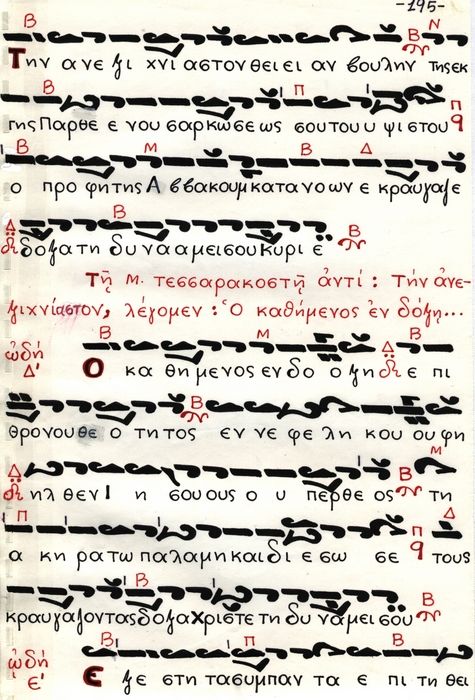 -195-
Την ανεξι χνι αστονθει ει αν βουλην τηςεκ
της Παρθε ε νου σαρκωσεως σου του υ ψι στου
ο προ φητης Α ββακουμ κατα νο ων ε κραυγαζε
δοξα τη δυ να α μει σου κυρι ε
Τῇ Μ. τεσσαρακοστῇ ἀντί : Τήν ἀνε-
ξιχνίαστον, λέγομεν : Ὁ καθήμενος ἐν δόξῃ...
ᾠδή Δ' Ο κα θη μενος εν δο ο ξη ε πι
θρονου θε ο τη τος εν νε φε λη κου ου φη
ηλ θεν Ι η σου ους ο υ περθε ος τη
α κη ρα τω παλαμη και δι ε σω σε τους
κραυγαζοντας δοξα Χριστε τη δυ να μει σου
ᾠδή Ε' Ε ξε στη τα συμπαν τα ε πι τη θει